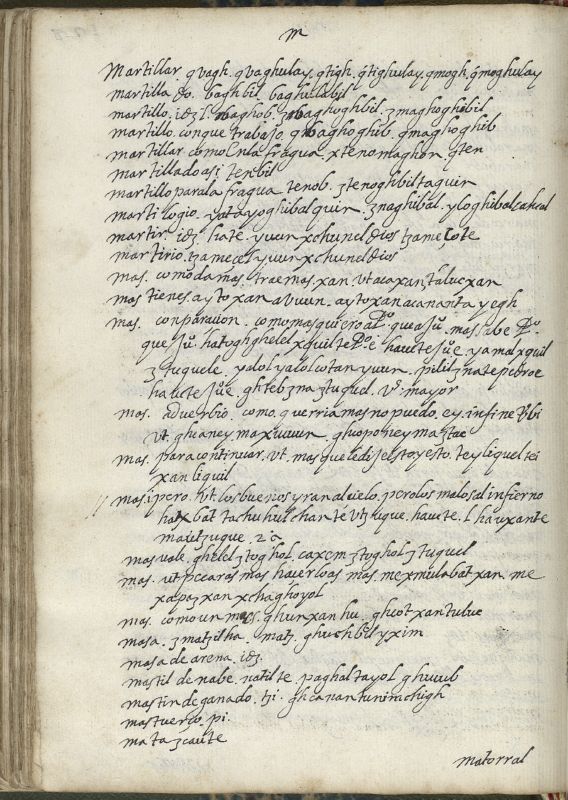 m
Martillar. qvagh. qvaghulay. qtigh. qtighulay. qmogh. qmoghulay
martilla do. baghbil. baghulabil
martillo. idz l. baghob. zbaghoghbil. zmaghoghibil
martillo. con que trabajo. qbaghoghib. qmaghoghib
martillar como en la fragua. xtenomaghon. qten
martillado asi. tenbil
martillo para la fragua. tenob. ztenoghibil taquin
marti logio. yatayoghibal quin. znaghibal. yloghibal cahcal
martir. idz. hate. yuun xchuncl dios tzamecote
martirio. tzamecel yuun xchuncl dios
mas. como da mas. trae mas. xan. vt acaxan. talucxan
mas tienes. aytoxan avuun. aytoxan acananta yegh
mas. conparauion. como mas quiero a Po. que a Ju. mas sabe Po
que Ju. hatoghghelel xquil te Po. e hauc te Jue. yamal xquil
ztuquele. yalol yalolcotan yuun. pilil znate pedro e
hauc te Jue. ghtebzna ztuqucl. vs. mayor
mas. adverbio. como. querria mas no puedo. ey. in fine verbi
vt. ghuaney. maxuuun. ghuoponey maztac
mas. para continuar. vt. mas que le dijo esto y esto. teyliquel tei
xan liquil
mas. i pero. vt los buenos yran al cielo. pero los malos al infierno
hatx bat tachuhulchan te vtzuque. hauc te. l. hauxan te
maietzuque. za
mas vale. ghelel ztoghol. caxem ztoghol ztuqucl
mas. vt peccaras mas. haver l(o)as mas. mexmulabat xan. me
xapaz xan xchaghoyol
mas. como un mes. ghunxan hu. ghcot xan tuluc
masa. zmatzilha. matz. ghuchbil yxim
masa de arena. idz.
mastil de nabe. natil te. paghal tayol ghucub
mastin de ganado. tzi. ghcanan tunimchigh
mastuerzo. pi.
mata zcaute
matorral